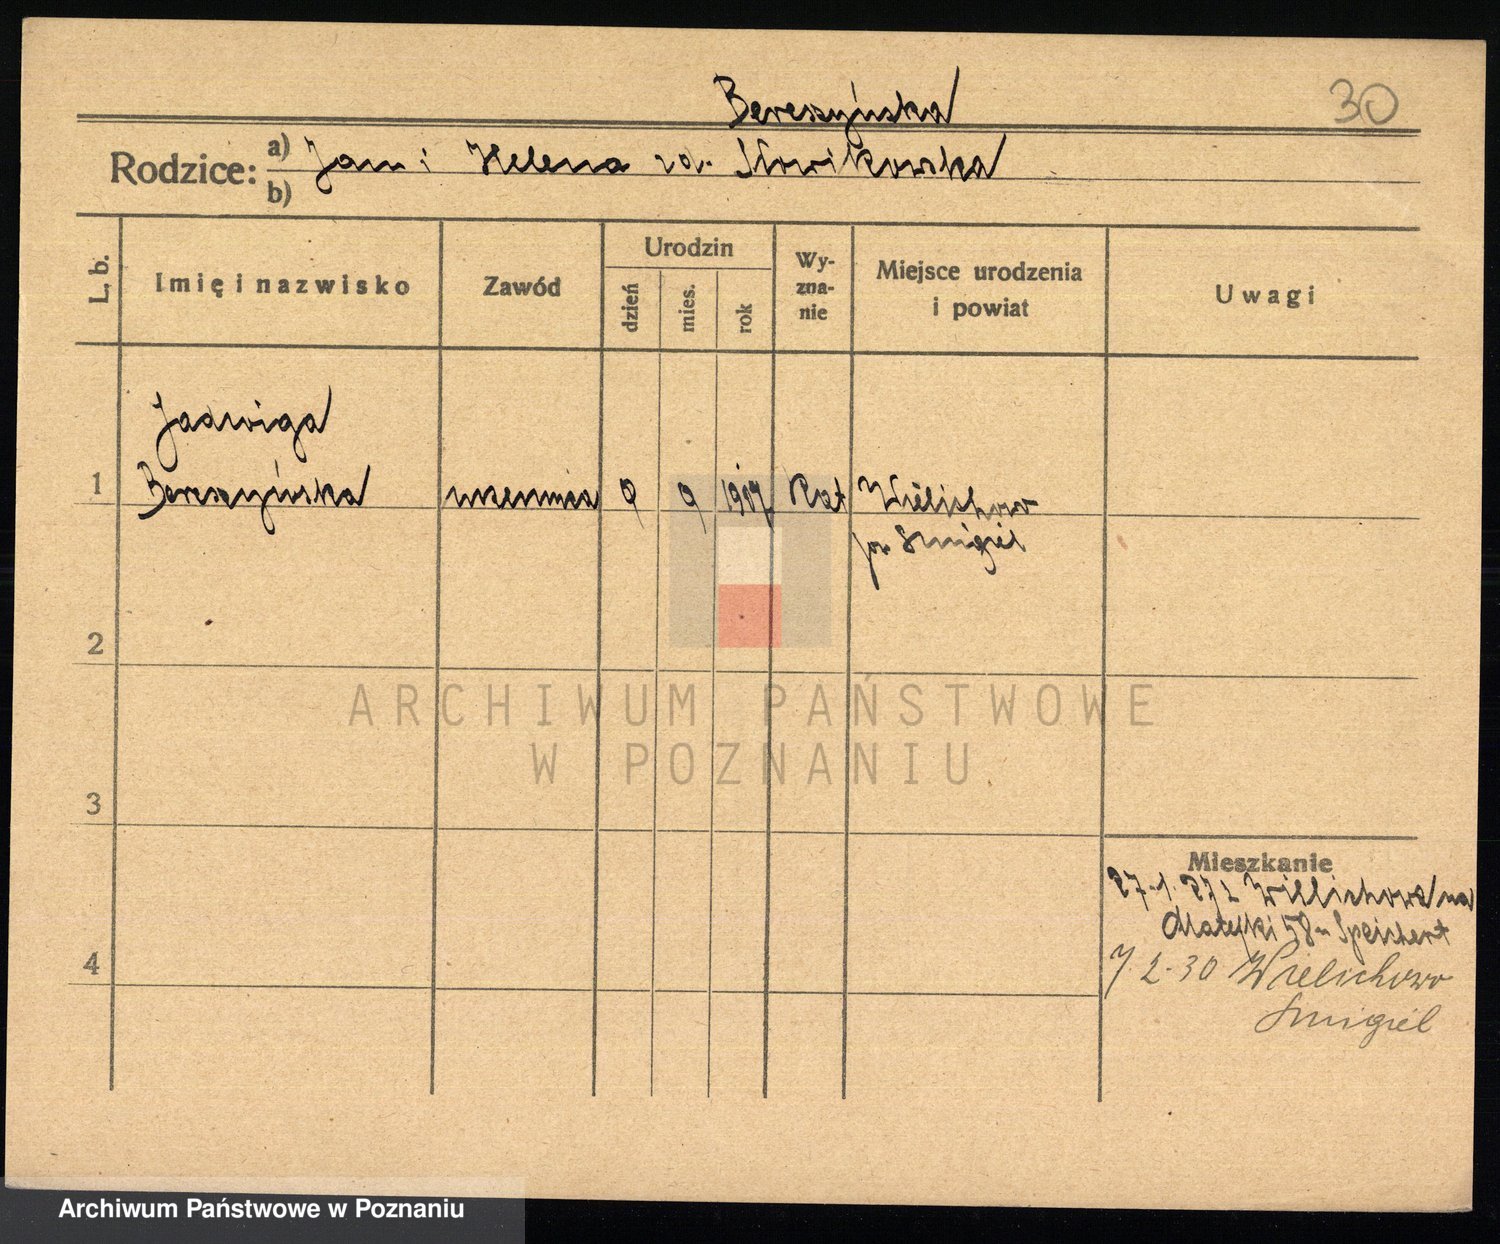 Bereszyńska
30
Rodzice: a) Jan i Helena zd. Słowikowska
b)
L. b.
Imię i nazwisko
Zawód
Urodzin
dzień
mies.
rok
Wy-
zna-
nie
Miejsce urodzenia
i powiat
Uwagi
Jadwiga
1 Bereszyńska uczennica 9 9 1917 Kat Wielichowo
pow Smigiel
2
ARCHIWUM PAŃSTWOWE
W POZNANIU
3
Mieszkanie
27-1. z Wielichowa na
Matejki 58 Speichert
4
7.2.30 Wielichowo
Smigiel
Archiwum Państwowe w Poznaniu